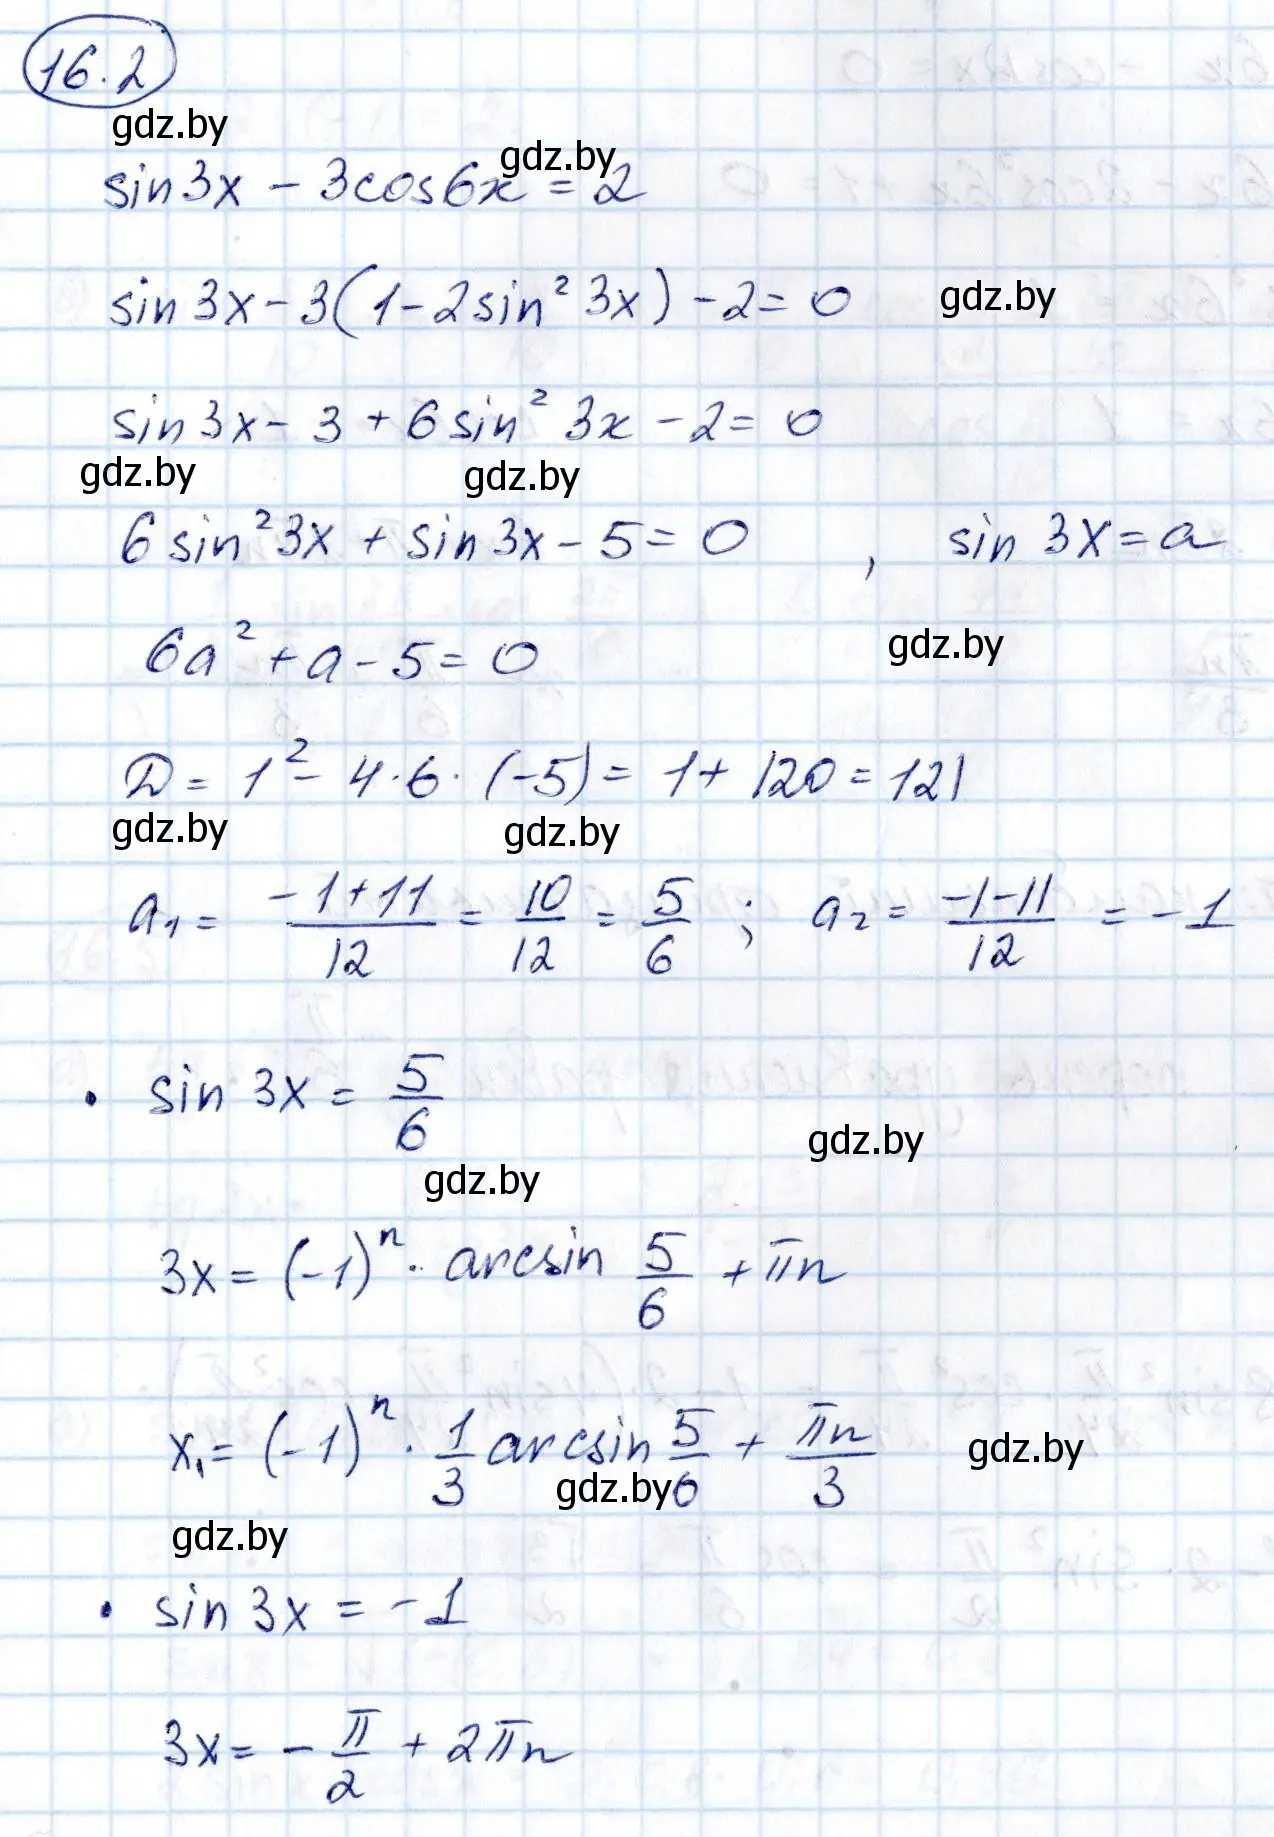 16.2
gdz.by
gdz.by
sin3x - 3cos6x = 2
sin 3x - 3(1 - 2sin² 3x) - 2 = 0
gdz.by
sin3x - 3 + 6sin² 3x - 2 = 0
gdz.by
gdz.by
6sin²3x + sin3x - 5 = 0 , sin 3x = a
6a² + a - 5 = 0
gdz.by
D = 1² - 4·6·(-5) = 1 + 120 = 121
gdz.by
gdz.by
a₁ = (-1+11)/12 = 10/12 = 5/6 ; a₂ = (-1-11)/12 = -1
• sin 3x = 5/6
gdz.by
gdz.by
3x = (-1)ⁿ · arcsin 5/6 + πn
x₁ = (-1)ⁿ · 1/3 arcsin 5/6 + πn/3
gdz.by
gdz.by
gdz.by
• sin 3x = -1
3x = - π/2 + 2πn